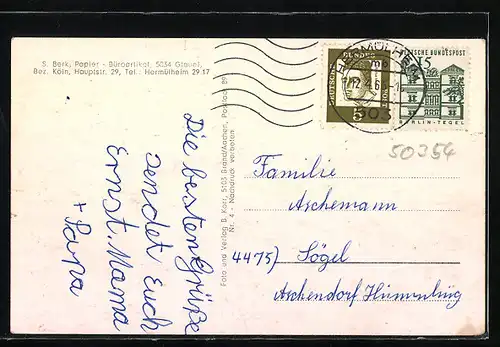 S. Berk, Papier - Büroartikel, 5034 Gleuel,
Bez. Köln, Hauptstr. 29, Tel.: Hermülheim 29 17
Die besten Grüße
sendet Euch
Ernst. Mama
+ Papa
Foto und Verlag B. Korr, 5103 Brand/Aachen, Postfach 89
Nr. 4 - Nachdruck verboten
HERMÜLHEIM
503
DEUTSCHE BUNDESPOST
5
DEUTSCHE BUNDESPOST
15
BERLIN-TEGEL
50354
Familie
Aschemann
4475) Sögel
Aschendorf Hümmling